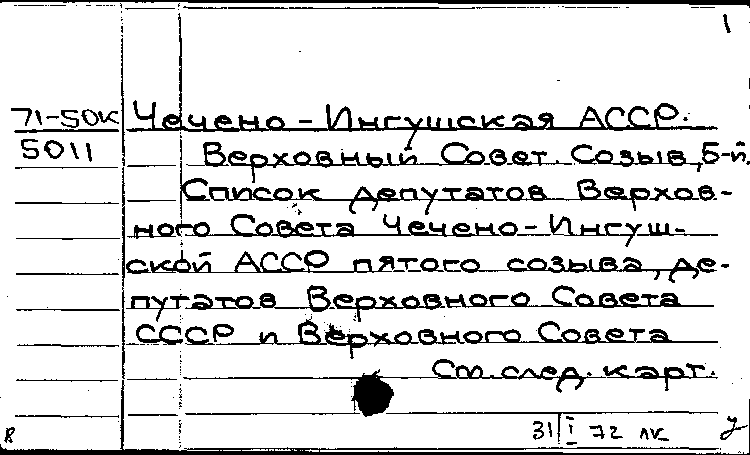 1
71-50к Чечено-Ингушская АССР.
5011 Верховный Совет. Созыв, 5-й.
Список депутатов Верхов-
ного Совета Чечено-Ингуш-
ской АССР пятого созыва, де-
путатов Верховного Совета
СССР и Верховного Совета
См. след. карт.
31/I 72 лк